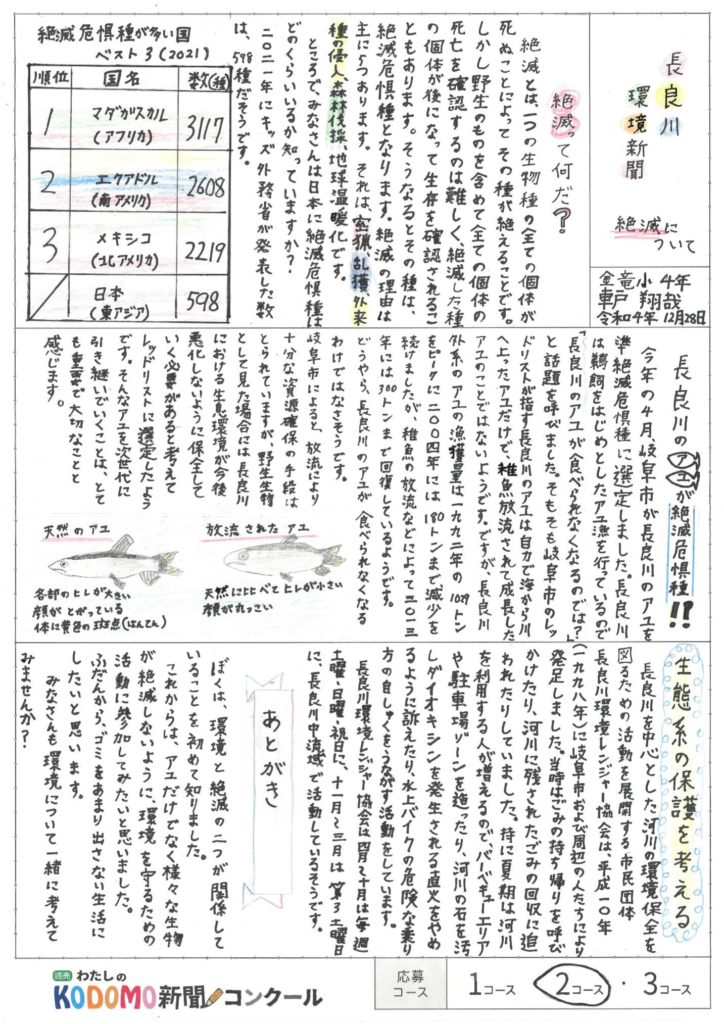 長良川
環境新聞
絶滅に
ついて
金竜小 4年
軒戸 翔哉
令和4年 12月28日
絶滅って何だ?
絶滅とは、一つの生物種の全ての個体が
死ぬことによって その種が絶えることです。
しかし野生のものを含めて全ての個体の
死亡を確認するのは難しく、絶滅した種
の個体が後になって生存を確認されるこ
ともあります。そうなるとその種は、
絶滅危惧種となります。絶滅の理由は
主に5つあります。それは、密猟、乱獲、外来
種の侵入、森林伐採、地球温暖化です。
ところで、みなさんは日本に絶滅危惧種は
どのくらいいるか知っていますか?
二〇二一年にキッズ外務省が発表した数
は、598種だそうです。
絶滅危惧種が多い国
ベスト3(2021)
順位 国名 数(種)
1 マダガスカル(アフリカ) 3117
2 エクアドル(南アメリカ) 2608
3 メキシコ(北アメリカ) 2219
日本(東アジア) 598
長良川のアユが絶滅危惧種!!
今年の4月、岐阜市が長良川のアユを
準絶滅危惧種に選定しました。長良川
は鵜飼をはじめとしたアユ漁を行っているので
「長良川のアユが食べられなくなるのでは?」
と話題を呼びました。そもそも岐阜市のレッ
ドリストが指す長良川のアユは自力で海から川
へ上ったアユだけで、稚魚放流されて成長した
アユのことではないようです。ですが、長良川
水系のアユの漁獲量は一九九二年の1029トン
をピークに二〇〇四年には180トンまで減少を
続けましたが、稚魚の放流などによって二〇一三
年には300トンまで回復しているようです。
どうやら、長良川のアユが食べられなくなる
わけではなさそうです。
岐阜市によると、放流により
十分な資源確保の手段は
とられていますが、野生生物
として見た場合には長良川
における生息環境が今後
悪化しないように保全して
いく必要があると考えて
レッドリストに選定したよう
です。そんなアユを次世代に
引き継いでいくことは、とて
も重要で大切なことと
感じます。
天然のアユ
各部のヒレが大きい
顔がとがっている
体に黄色の斑点(はんてん)
放流されたアユ
天然に比べてヒレが小さい
顔が丸っこい
生態系の保護を考える
長良川を中心とした、河川の環境保全を
図るための活動を展開する市民団体
長良川環境レンジャー協会は、平成一〇年
(一九九八年)に岐阜市および周辺の人たちにより
発足しました。当時はごみの持ち帰りを呼び
かけたり、河川に残されたごみの回収に追
われたりしていました。特に夏期は河川
を利用する人が増えるので、バーベキューエリア
や駐車場ゾーンを造ったり、河川の石を汚
しダイオキシンを発生される直火をやめ
るように訴えたり、水上バイクの危険な乗り
方の自しゅくをうながす活動をしています。
長良川環境レンジャー協会は四月〜十月は毎週
土曜・日曜・祝日に、十一月〜三月は 第3土曜日
に、長良川中流域で活動しているそうです。
あとがき
ぼくは、環境と絶滅の二つが関係して
いることを初めて知りました。
これからは、アユだけでなく様々な生物
が絶滅しないように、環境を守るための
活動に参加してみたいと思いました。
ふだんから、ゴミをあまり出さない生活に
したいと思います。
みなさんも環境について一緒に考えて
みませんか?
読売 わたしの
KODOMO新聞コンクール
応募コース 1コース ・ 2コース ・ 3コース